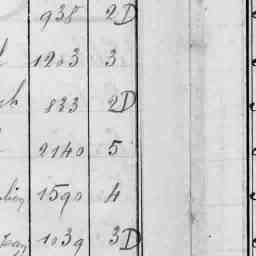 938 2D
1203 3
833 2D
2140 5
1590 4
1039 3D